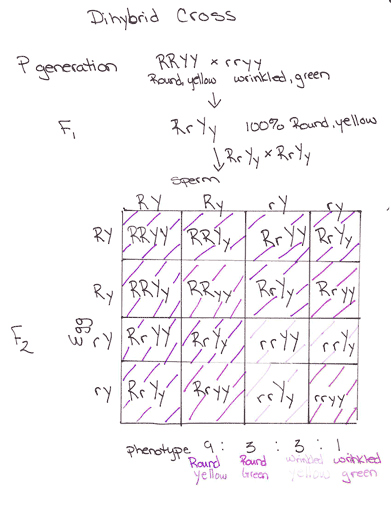 Dihybrid Cross
P generation RRYY × rryy
Round, yellow wrinkled, green
F1 RrYy 100% Round, yellow
RrYy × RrYy
sperm
RY Ry rY ry
RY RRYY RRYy RrYY RrYy
Ry RRYy RRyy RrYy Rryy
F2 egg rY RrYY RrYy rrYY rrYy
ry RrYy Rryy rrYy rryy
phenotype 9 : 3 : 3 : 1
Round Round wrinkled wrinkled
yellow Green yellow green